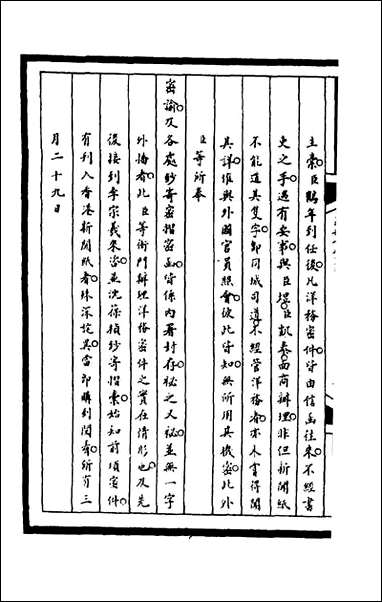 主稾臣鶴年到任後凡洋務密件皆由信函往來不經書
吏之手遇有要事與臣煜臣凱泰面商辦理非但新聞紙
不能道其隻字卽同城司道不經管洋務者亦未嘗得聞
其詳惟與外國官員照會彼此皆知無所用其機密此外
臣等所奉
密諭及各處鈔寄密摺密函皆係內署封存秘之又秘並無一字
外播者此臣等衙門辦理洋務密件之實在情形也及先
後接到李宗羲來咨並沈葆楨鈔寄摺稾始知前項密件
有刊入香港新聞紙者殊深詫異當卽購到閱看所有三
月二十九日